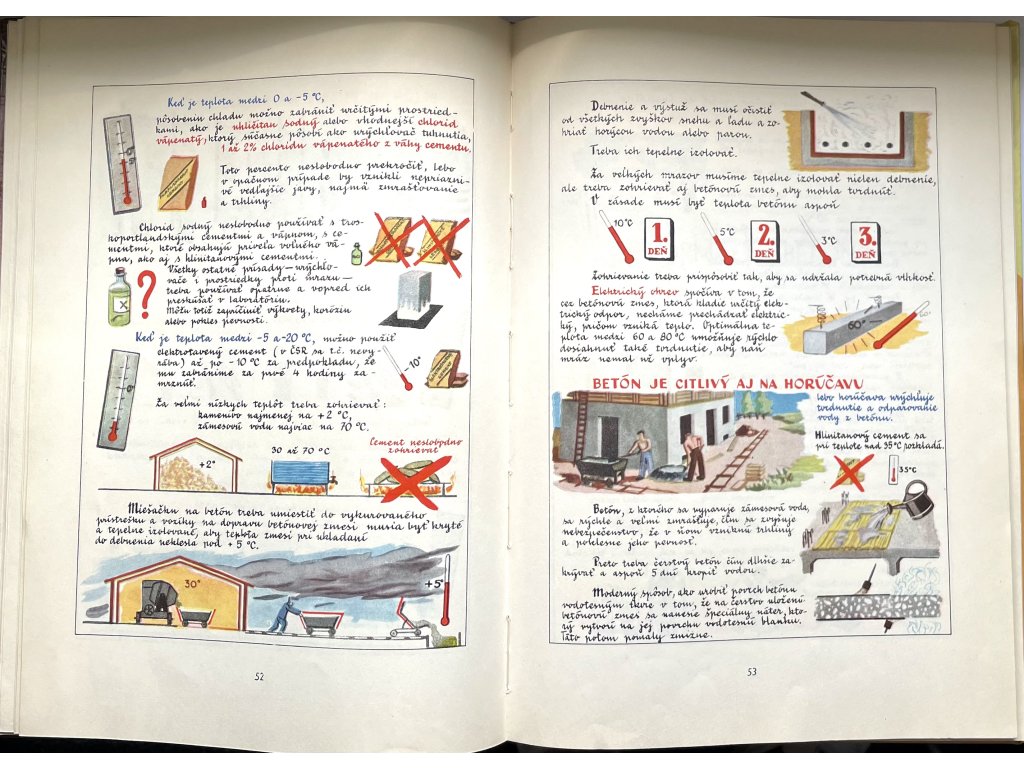 Keď je teplota medzi 0 a -5 °C,
pôsobeniu chladu možno zabrániť určitými prostried-
kami, ako je uhličitan sodný alebo vhodnejší chlorid
vápenatý, ktorý súčasne pôsobí ako urýchľovač tuhnutia,
1 až 2% chloridu vápenatého z váhy cementu.
Toto percento neslobodno prekročiť, lebo
v opačnom prípade by vznikli nepriazni-
vé vedľajšie javy, najmä zmrašťovanie
a trhliny.
Chlorid sodný neslobodno používať s tros-
koportlandskými cementmi a vápnom, s ce-
mentmi, ktoré obsahujú priveľa voľného vá-
pna, ako aj s hlinitanovými cementmi.
Všetky ostatné prísady — urýchľo-
vače i prostriedky proti mrazu —
treba používať opatrne a vopred ich
preskúšať v laboratóriu.
Môžu totiž zapríčiniť výkvety, koróziu
alebo pokles pevnosti.
X
?
Keď je teplota medzi -5 a -20 °C, možno použiť
elektrotavený cement (v ČSR sa t. č. nevy-
rába) až po -10 °C za predpokladu, že
mu zabránime za prvé 4 hodiny za-
mrznúť.
-10°
Za veľmi nízkych teplôt treba zohrievať:
kamenivo najmenej na +2 °C,
zámesovú vodu najviac na 70 °C.
+2°
30 až 70 °C
Cement neslobodno
zohrievať
Miešačku na betón treba umiestiť do vykurovaného
prístrešku a vozíky na dopravu betónovej zmesi musia byť kryté
a tepelne izolované, aby teplota zmesi pri ukladaní
do debnenia neklesla pod +5 °C.
30°
+5°
52
Debnenie a výstuž sa musí očistiť
od všetkých zvyškov snehu a ľadu a zo-
hriať horúcou vodou alebo parou.
Treba ich tepelne izolovať.
Za veľkých mrazov musíme tepelne izolovať nielen debnenie,
ale treba zohrievať aj betónovú zmes, aby mohla tvrdnúť.
V zásade musí byť teplota betónu aspoň
10°C
1.
DEŇ
5°C
2.
DEŇ
3°C
3.
DEŇ
Zohrievanie treba prispôsobiť tak, aby sa udržala potrebná vlhkosť.
Elektrický ohrev spočíva v tom, že
cez betónovú zmes, ktorá kladie určitý elek-
trický odpor, necháme prechádzať elektric-
ký, pričom vzniká teplo. Optimálna te-
plota medzi 60 a 80 °C umožňuje rýchlo
dosiahnuť také tvrdnutie, aby naň
mráz nemal už vplyv.
60°
60°
BETÓN JE CITLIVÝ AJ NA HORÚČAVU
lebo horúčava urýchľuje
tvrdnutie a odparovanie
vody z betónu.
Hlinitanový cement sa
pri teplote nad 35°C rozkladá.
35°C
Betón, z ktorého sa vyparuje zámesová voda,
sa rýchle a veľmi zmrašťuje, čím sa zvyšuje
nebezpečenstvo, že v ňom vzniknú trhliny
a poklesne jeho pevnosť.
Preto treba čerstvý betón čím dlhšie za-
krývať a aspoň 5 dní kropiť vodou.
Moderný spôsob, ako urobiť povrch betónu
vodotesným tkvie v tom, že na čerstvo uloženú
betónovú zmes sa nanesie špeciálny náter, kto-
rý vytvorí na jej povrchu vodotesnú blanku.
Táto potom pomaly zmizne.
53